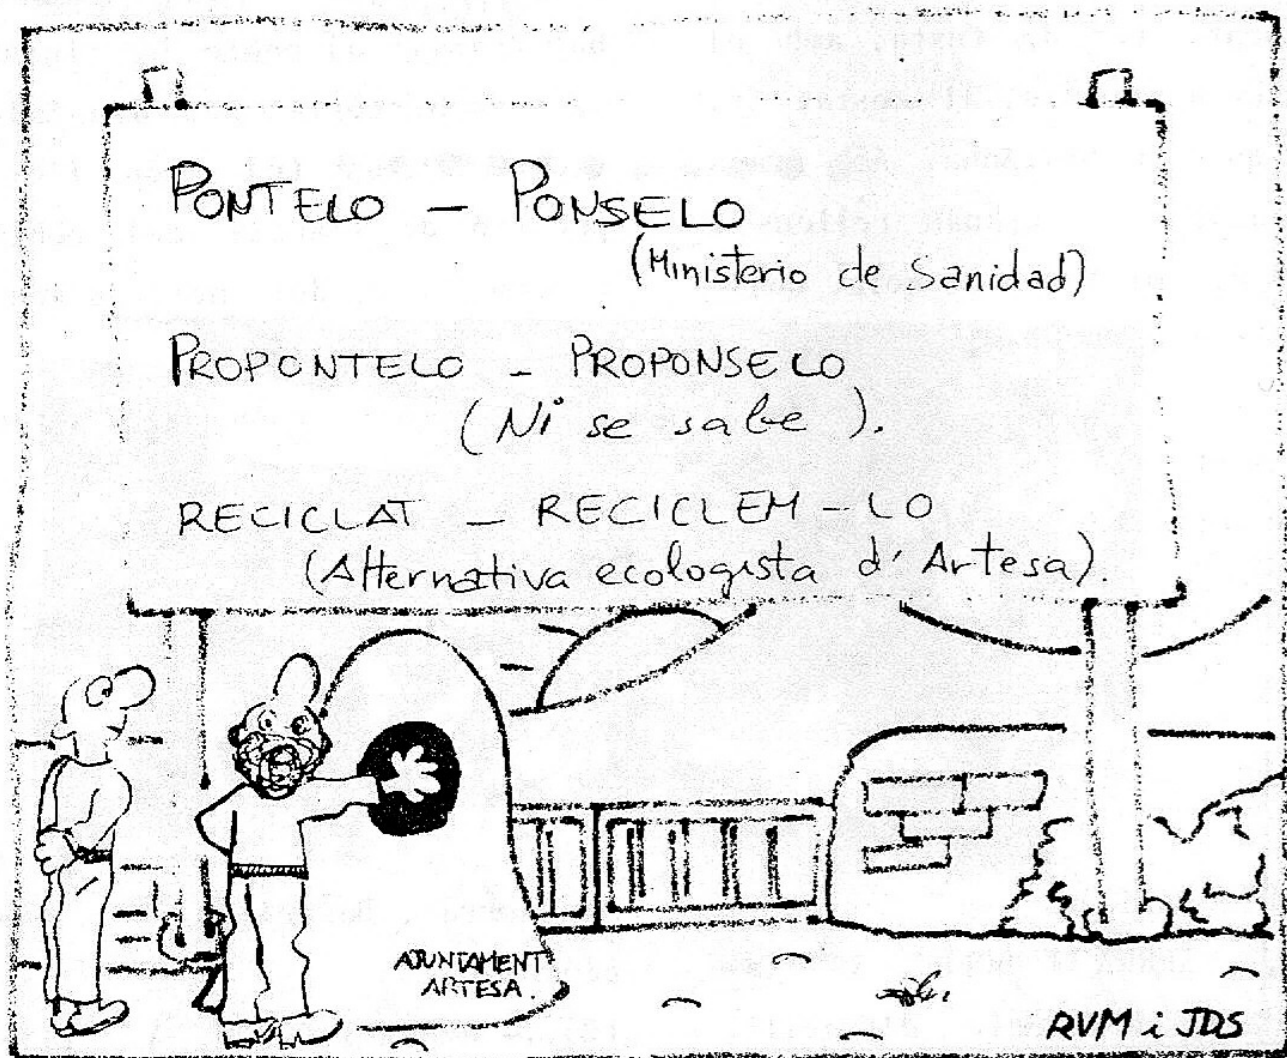 PONTELO - PONSELO
(Ministerio de Sanidad)
PROPONTELO - PROPONSELO
(Ni se sabe).
RECICLAT - RECICLEM-LO
(Alternativa ecologista d'Artesa).
AJUNTAMENT
ARTESA.
RVM i JDS